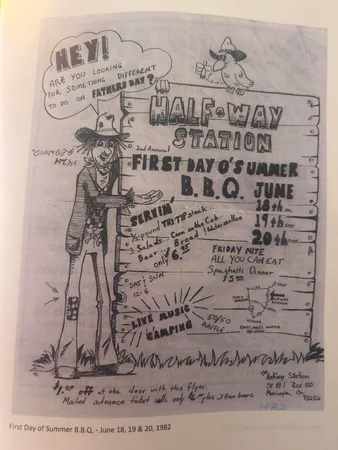 HEY!
ARE YOU LOOKING
FOR SOMETHING DIFFERENT
TO DO ON FATHERS DAY?
HALF-WAY
STATION
2nd Annual
FIRST DAY O'SUMMER
B.B.Q. JUNE
18th
19th
20th
SERVIN'
½ pound TRI TIP steak
3 Salads. Corn on the Cob
Beer Bread Watermellon
only 6.95
SAT & SUN
12-6
FRIDAY NITE
ALL YOU CAN EAT
Spaghetti Dinner
$5.00
LIVE MUSIC
CAMPING
50/50
RAFFLE
$1.00 off at the door with this flyer.
Mailed advance ticket only plus 2 free beers
Halfway Station
St Rt 1 Box 150
Maricopa, Ca.
93252
1982
First Day of Summer B.B.Q. - June 18, 19 & 20, 1982